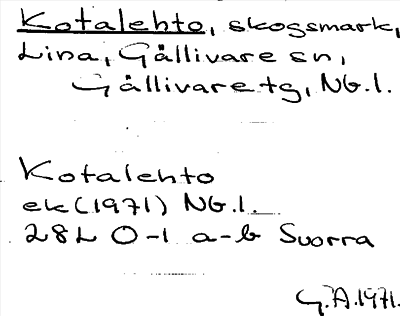 Kotalehto, skogsmark,
Lina, Gällivare sn,
Gällivare tg, Nb.l.
Kotalehto
ek(1971) Nb.l.
28L 0-1 a-b Suorra
G.A.1971.